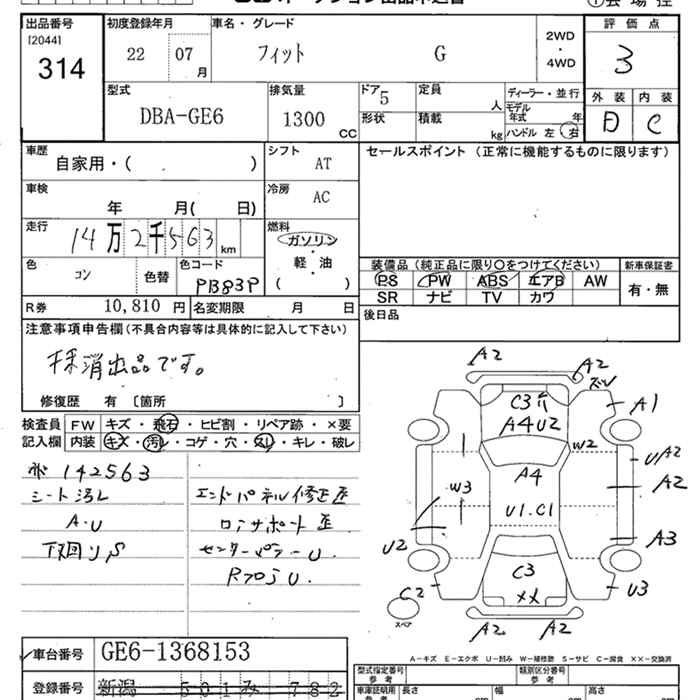 出品番号 初度登録年月 車名・グレード 評価点
[2044] 314
22 07 月 フィット G 2WD・4WD 3
型式 DBA-GE6 排気量 1300 CC
ドア 5 形状 定員 人 積載 kg
ディーラー・並行 モデル年式 年 ハンドル 左 右
外装 内装
D C
車歴 自家用・( ) シフト AT
セールスポイント(正常に機能するものに限ります)
車検 年 月( 日) 冷房 AC
走行 14万2千563 km
燃料 ガソリン・軽油・( )
色 コン 色替 色コード PB83P
装備品(純正品に限り○をつけてください) 新車保証書
PS PW ABS エアB AW 有・無
SR ナビ TV カワ
R券 10,810 円 名変期限 月 日
後日品
注意事項申告欄(不具合内容等は具体的に記入して下さい)
抹消出品です。
修復歴 有 〔箇所 〕
検査員記入欄 FW キズ・飛石・ヒビ割・リペア跡・×要
内装 キズ・汚レ・コゲ・穴・スレ・キレ・破レ
142563
シート汚レ
A・U
下回りS
エンドパネル修正歪
コアサポート歪
センターピラーU.
Rフロj U.
A2 A2
ズレ
C3 A1
A4U2
W2 U/A2
A4 A2
W3 U1.C1
U2 A3
C3
C2 ×× U3
スペア
A2 A2
A-キズ E-エクボ U-凹み W-補修跡 S-サビ C-腐食 ××-交換済
車台番号 GE6-1368153
型式指定番号 参考 類別区分番号 参考
登録番号 新潟 501 み 782
車庫証明用 参考 長さ cm 幅 cm 高さ cm